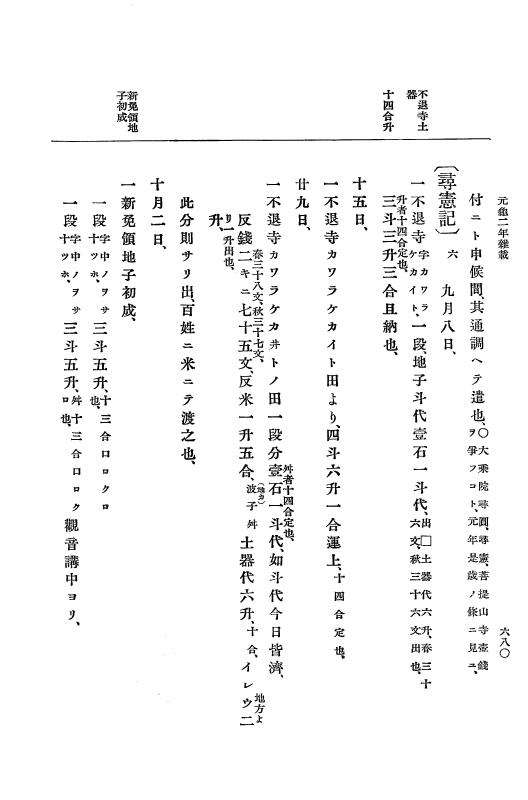 元龜二年雜載
六八〇
付ニト申候間、其通調ヘテ遣也、〇大乘院尋圓、尋憲、菩提山寺壺錢ヲ爭フコト、元年是歳ノ條ニ見ユ、
〔尋憲記〕六 九月八日、
不退寺土器
一不退寺字カワラケカイト、一段、地子斗代壹石一斗代、出□土器代六升、春三十六文、秋三十六文出也、
十四合升
升者十四合定也、
三斗三升三合且納也、
十五日、
一不退寺カワラケカイト田より、四斗六升一合運上、十四合定也、
廿九日、
一不退寺カワラケカ井トノ田一段分壹石一斗代、如斗代今日皆濟、
舛者十四合定也、
春三十八文、秋三十七文、
反錢二キニ七十五文、反米一升五合、波子舛土器代六升、十合、イレウ二升、
(地カ)
地方よリ一升出也、
此分則サリ出、百姓ニ米ニテ渡之也、
十月二日、
新免領地子初成
一新免領地子初成、
一段字中ノヲサ十ツホ、三斗五升、十三合ロロクロ也、
一段字中ノヲサ十ツホ、三斗五升、舛十三合ロロクロ也、觀音講中ヨリ、